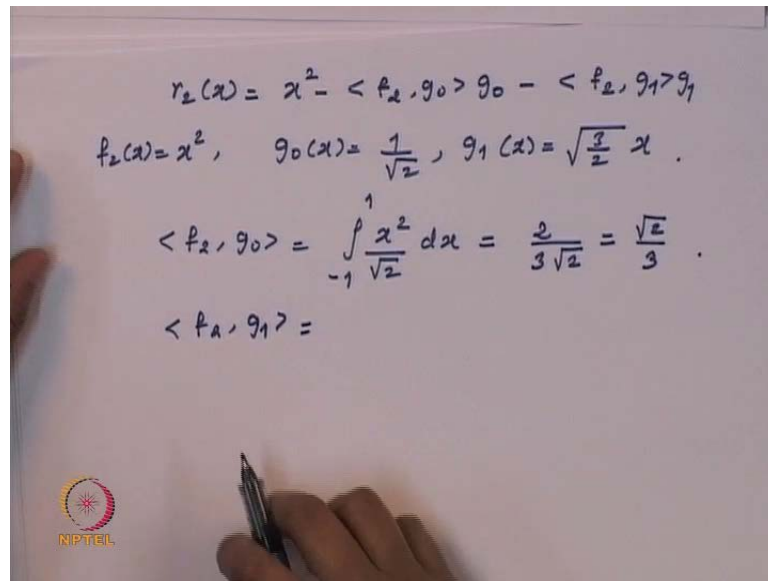 r₂(x) = x² - < f₂, g₀ > g₀ - < f₂, g₁ > g₁
f₂(x) = x², g₀(x) = 1/√2, g₁(x) = √(3/2) x .
< f₂, g₀ > = ∫₋₁¹ x²/√2 dx = 2/(3√2) = √2/3 .
< f₂, g₁ > =
NPTEL